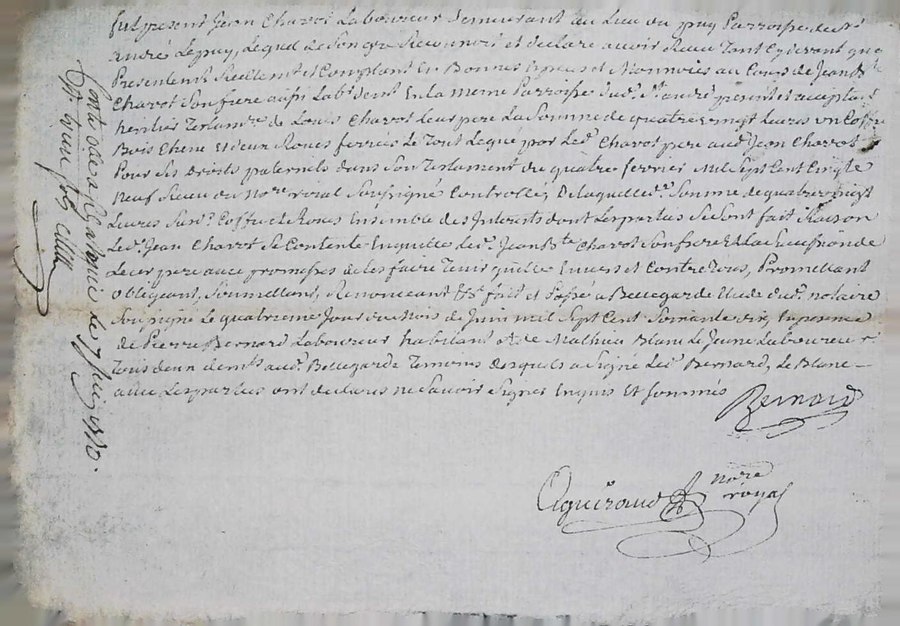 fut present Jean Chavot Laboureur demeurant au Lieu du puy Parroisse de St
André Le puy, Lequel de Son gré Reconnoit et declare avoir Reçu Tout Cy devant que
Presentement Reellement et Comptant En Bonnes Especes et Monnoies au Cours de Jean Bte
Chavot Son frere aussi Labr demt En La meme Parroisse dud. St andré present et acceptant
heritier Testamre de Louis Chavot Leur pere La Somme de quatre vingt Livres un Coffre
Bois Chene Et deux Roues ferrées Le Tout Legué par Led. Chavot pere aud. Jean Chavot
Pour Ses Droits paternels dans Son Testament du quatre fevrier Mil Sept Cent Cinqte
Neuf Reçu du Nore roial Soussigné Controllé, De laquelle de. Somme de quatre vingt
Livres Coffre et Roues Ensemble des Interets dont Les parties Se Sont fait Raison
Led. Jean Chavot Se Contente Enquitte Led. Jean Bte Chavot Son frere Et La Succession de
Leur pere avec promesses de Les faire Tenir quitte Envers et Contre Tous, Promettant
obligeant, Soumettant, Renonceant &c fait et Passé a Bellegarde Etude dud. notaire
Soussigné Le quatrieme Jour du Mois de Juin mil Sept Cent Soixante dix, En presence
de Pierre Bernard Laboureur habitant et de Mathieu Blanc Le Jeune Laboureur
Tous deux demts aud. Bellegarde Temoins desquels a Signé Led. Bernard, Le Blanc
avec Les parties ont declarés ne Savoir Signer Enquis Et Sommés
Bernard
Aguiraud nore
royal
Conte delle a St 7 Juin 1770.